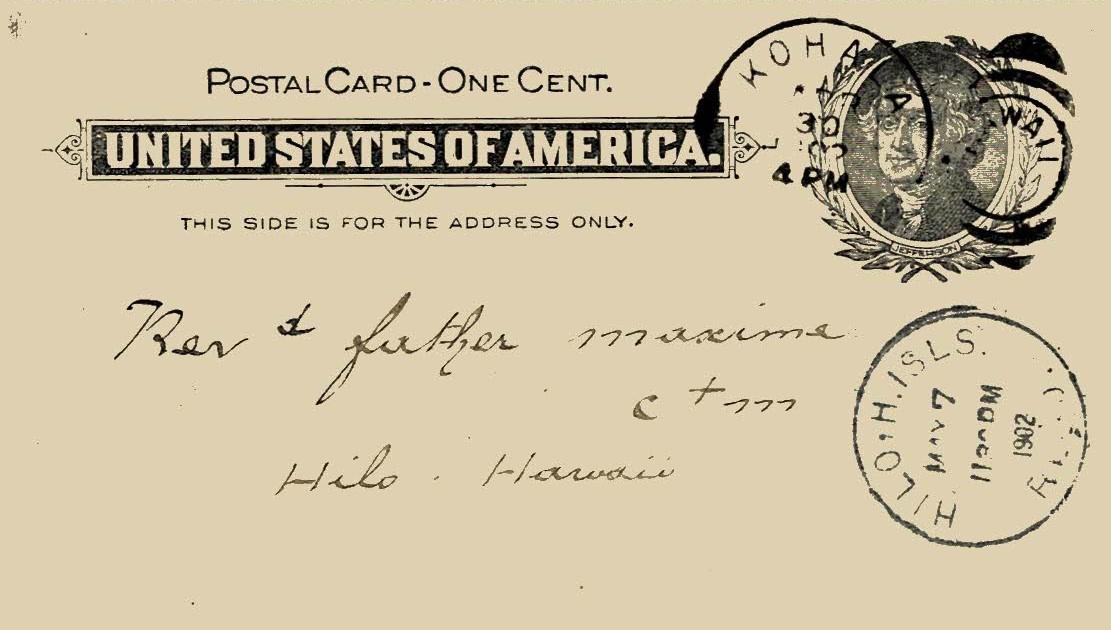 POSTAL CARD - ONE CENT.
UNITED STATES OF AMERICA.
THIS SIDE IS FOR THE ADDRESS ONLY.
KOHALA
30
4 PM
JEFFERSON
Rev d father maxime
c + m
Hilo . Hawaii
HILO, H. ISLS.
MAY 7
1902